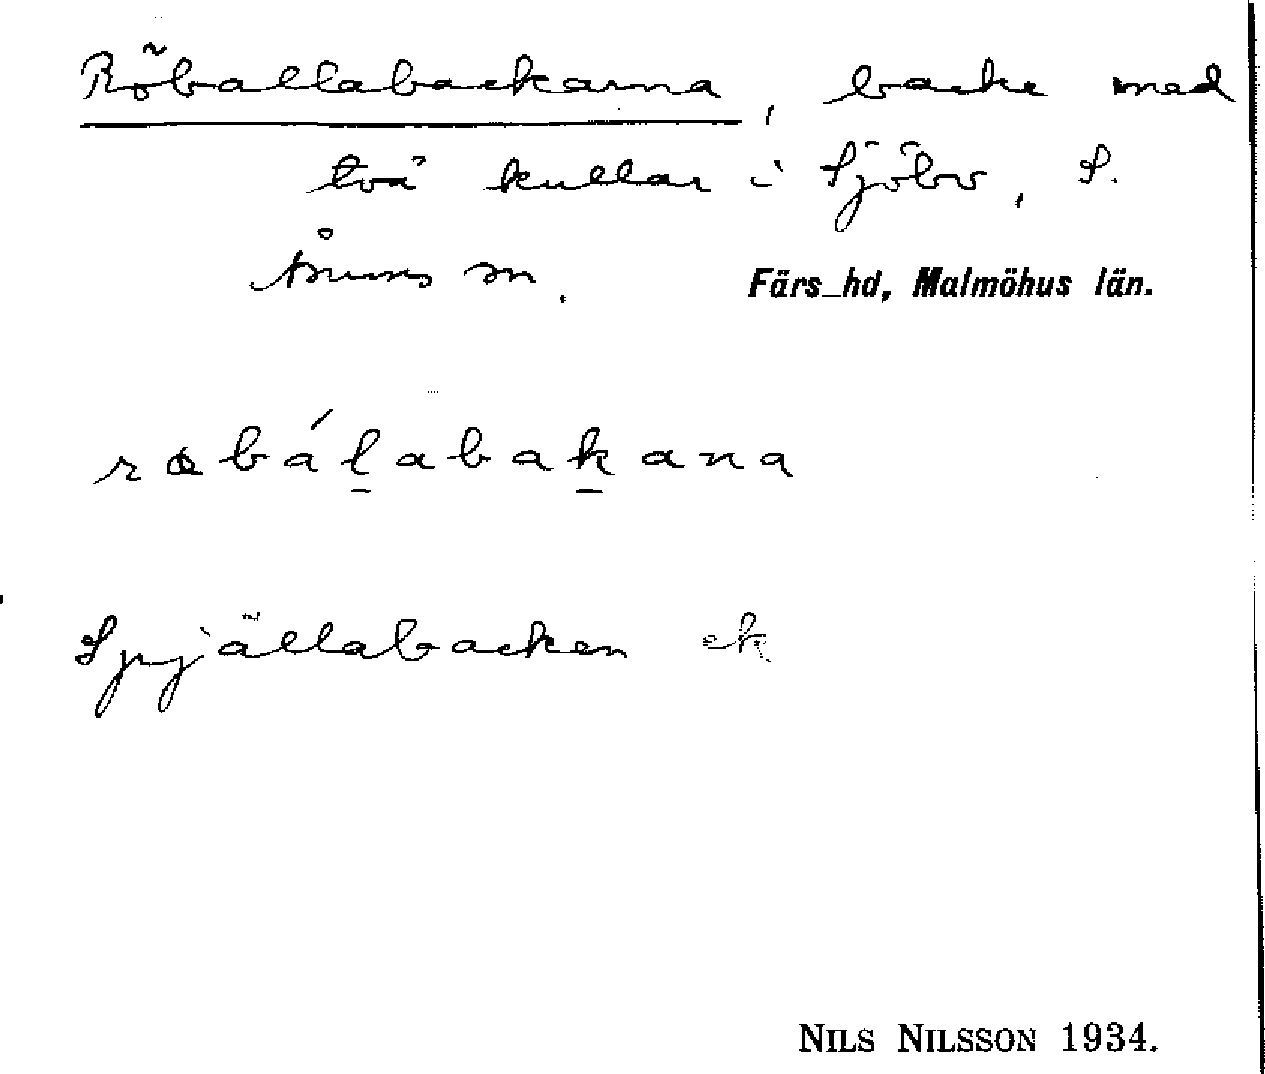 Röballabackarna, backe med
två kullar i Sjöbo, S.
Åsums sn.
Färs hd, Malmöhus län.
rabálabakana
Spjällabacken ek
NILS NILSSON 1934.